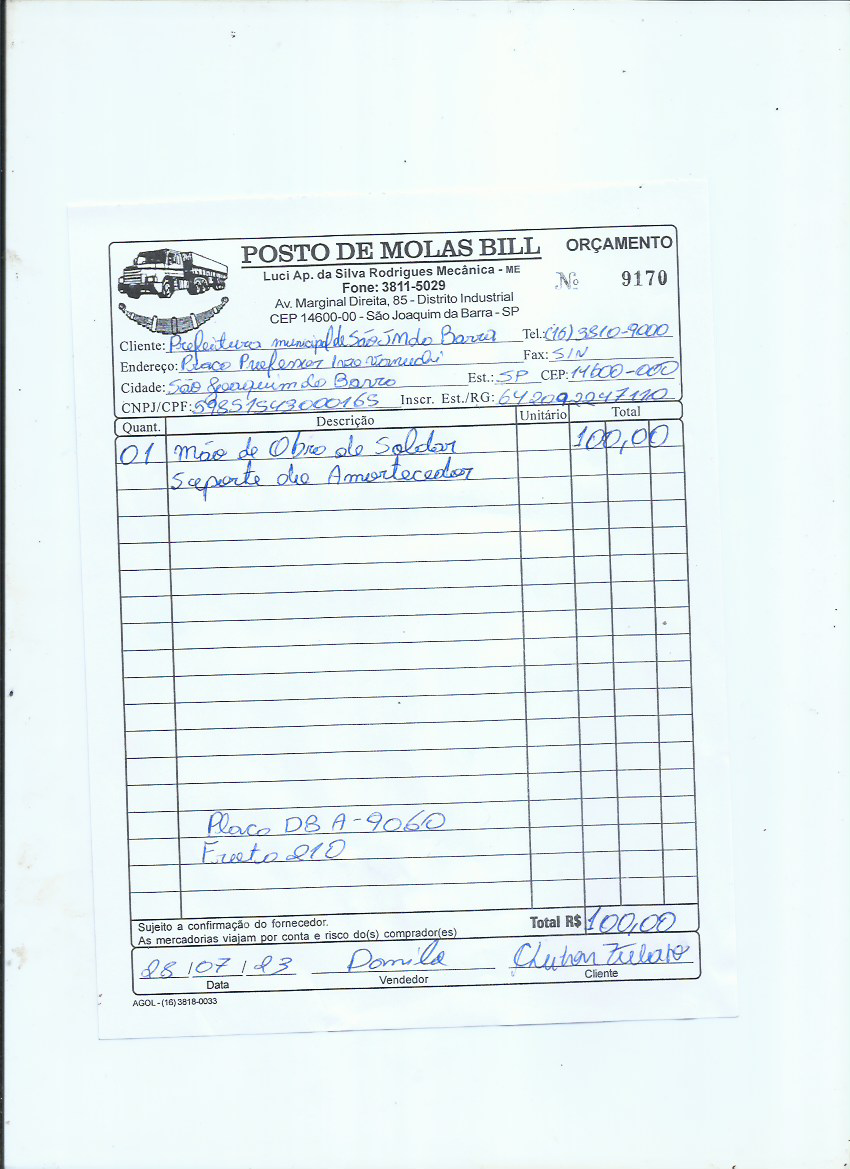 POSTO DE MOLAS BILL
ORÇAMENTO
Luci Ap. da Silva Rodrigues Mecânica - ME
Nº 9170
Fone: 3811-5029
Av. Marginal Direita, 85 - Distrito Industrial
CEP 14600-00 - São Joaquim da Barra - SP
Cliente: Prefeitura municipal de São JM do Barra Tel.: (16) 3810-9000
Endereço: Praco Professor Fax: S/N
Cidade: São Joaquim do Barro Est.: SP CEP: 14600-000
CNPJ/CPF: 59851543000165 Inscr. Est./RG: 642092247110
Quant. Descrição Unitário Total
01 Mão de Obro de Soldar 100,00
Suporte de Amortecedor
Placo DBA-9060
Froto 210
Sujeito a confirmação do fornecedor.
As mercadorias viajam por conta e risco do(s) comprador(es)
Total R$ 100,00
28/07/23 Domila
Data Vendedor Cliente
AGOL - (16) 3818-0033